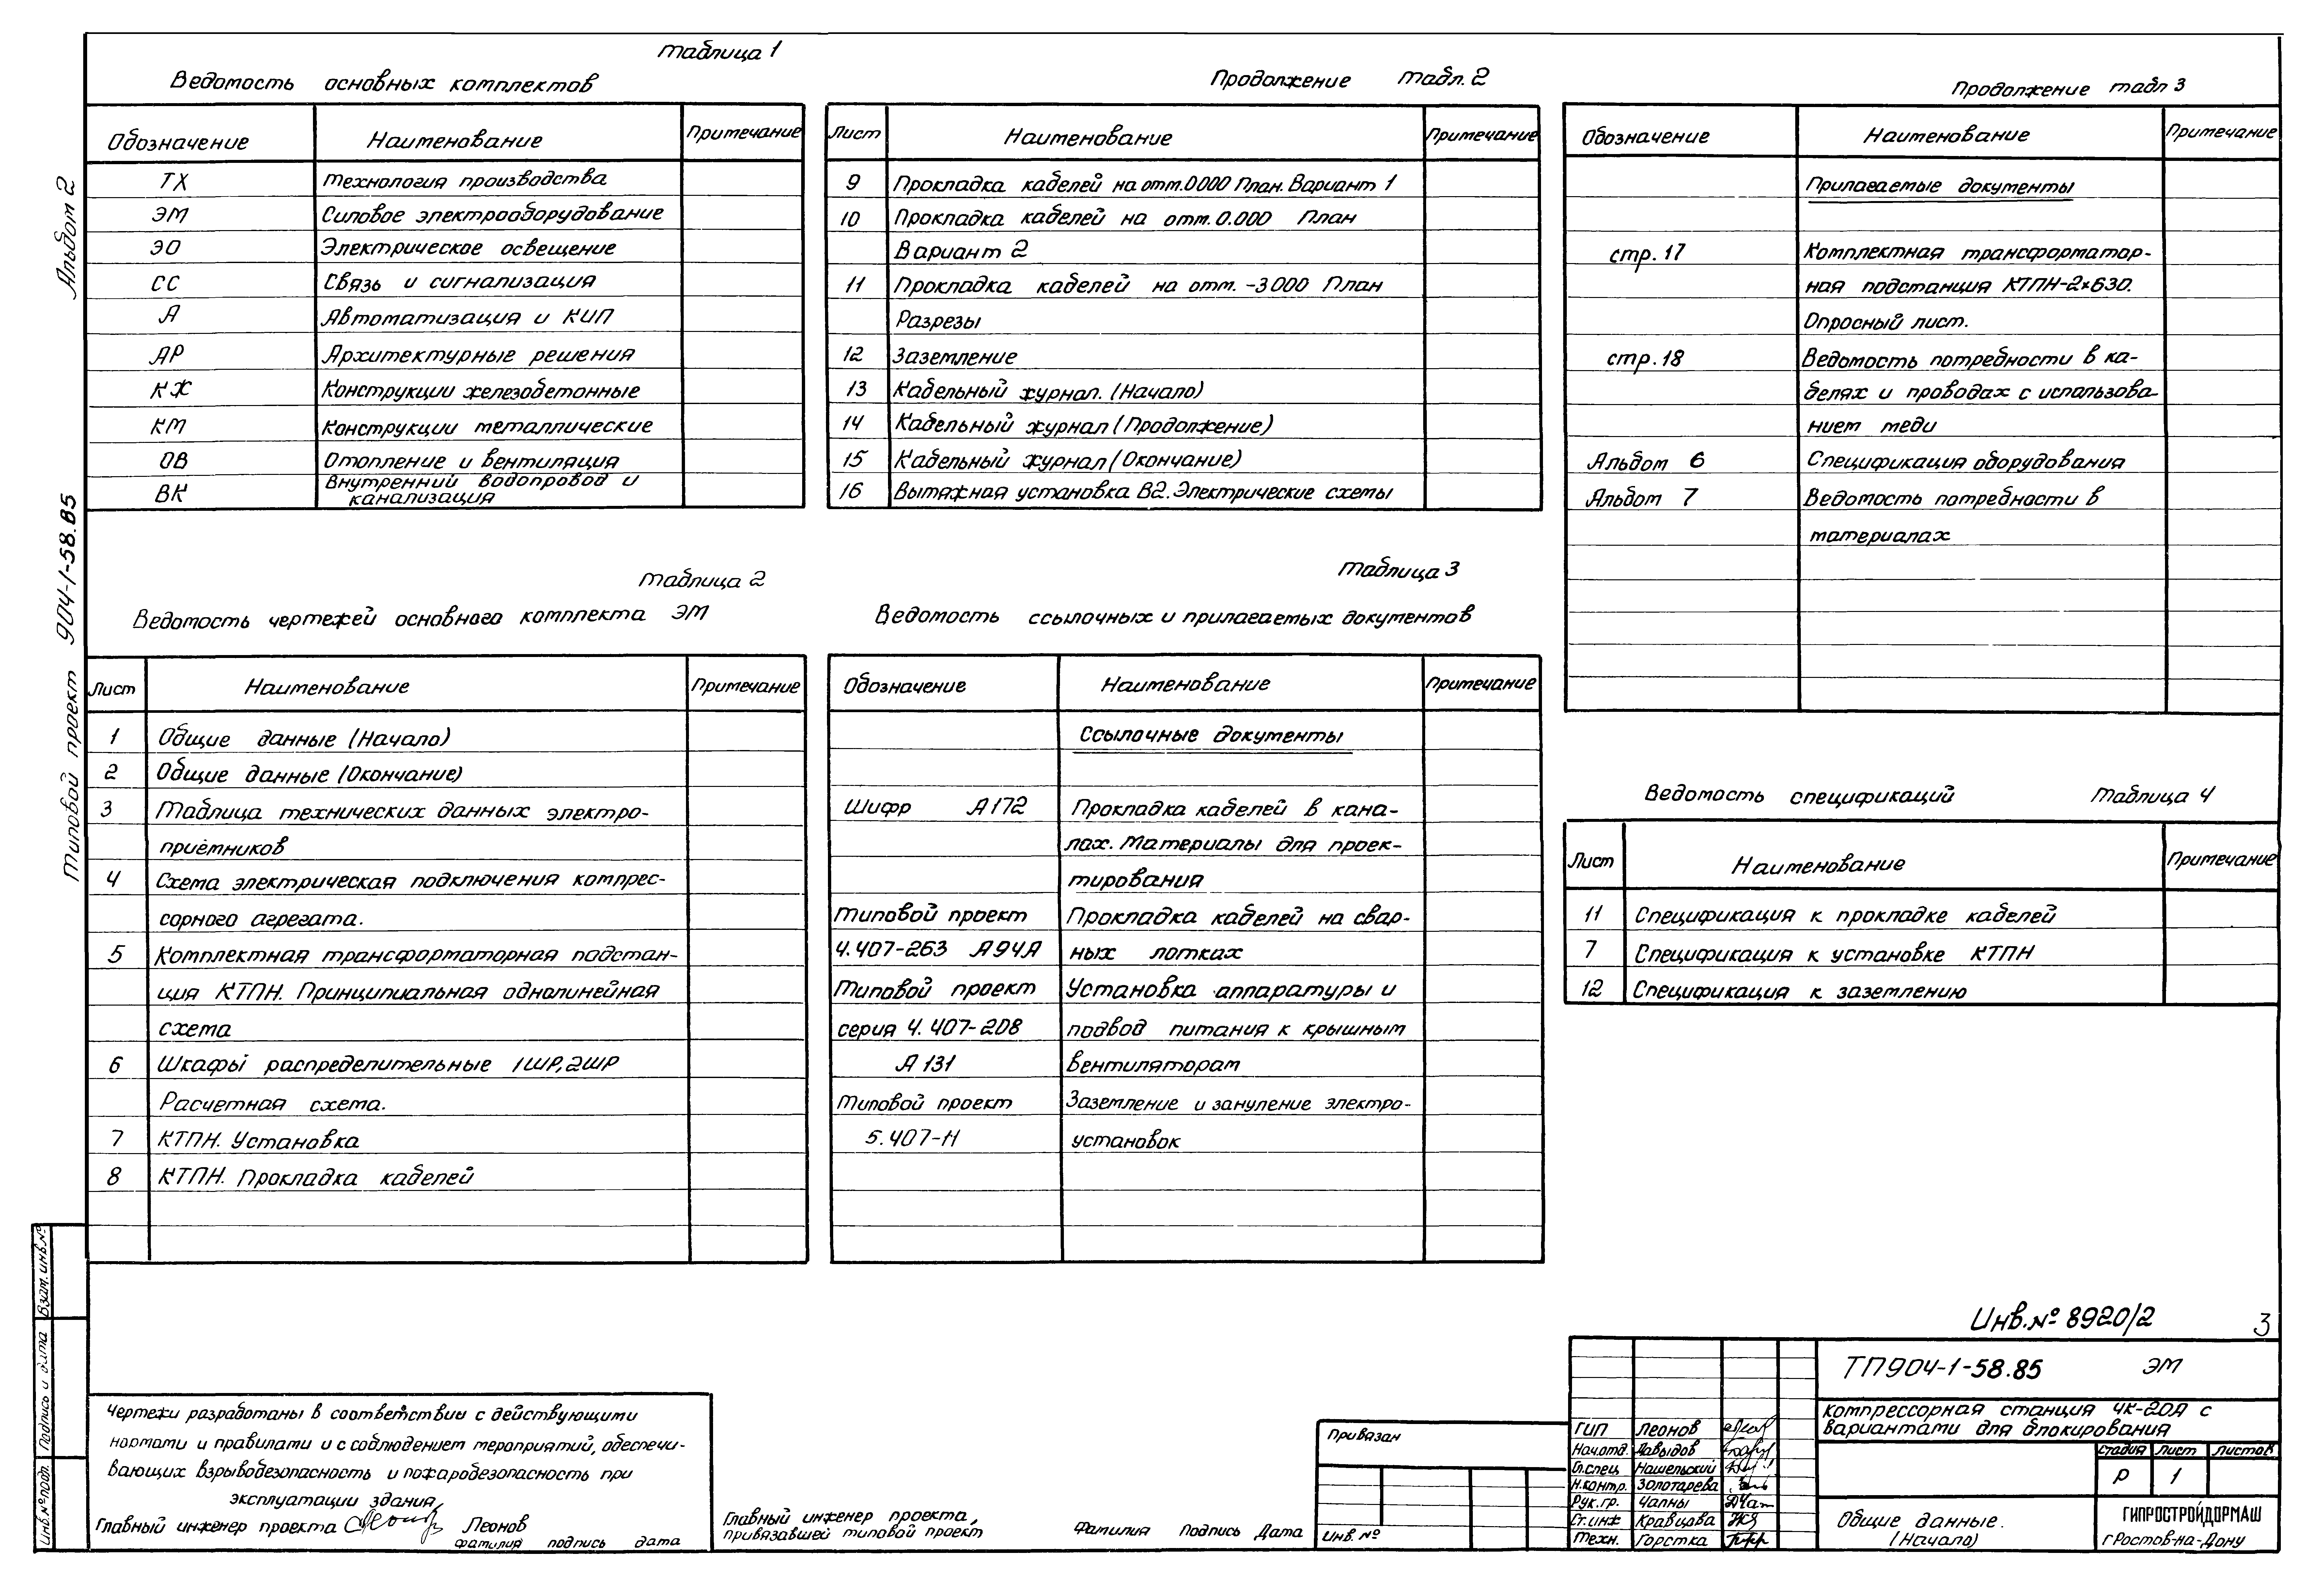 Альбом 2
Типовой проект 904-1-58.85
Таблица 1
Ведомость основных комплектов
Обозначение Наименование Примечание
ТХ Технология производства
ЭМ Силовое электрооборудование
ЭО Электрическое освещение
СС Связь и сигнализация
А Автоматизация и КИП
АР Архитектурные решения
КЖ Конструкции железобетонные
КМ Конструкции металлические
ОВ Отопление и вентиляция
ВК Внутренний водопровод и
канализация
Таблица 2
Ведомость чертежей основного комплекта ЭМ
Лист Наименование Примечание
1 Общие данные (Начало)
2 Общие данные (Окончание)
3 Таблица технических данных электро-
приёмников
4 Схема электрическая подключения компрес-
сорного агрегата.
5 Комплектная трансформаторная подстан-
ция КТПН. Принципиальная однолинейная
схема
6 Шкафы распределительные 1ШР,2ШР
Расчетная схема.
7 КТПН. Установка
8 КТПН. Прокладка кабелей
Продолжение табл. 2
Лист Наименование Примечание
9 Прокладка кабелей на отм.0000 План. Вариант 1
10 Прокладка кабелей на отм. 0.000 План
Вариант 2
11 Прокладка кабелей на отм. -3000 План
Разрезы
12 Заземление
13 Кабельный журнал. (Начало)
14 Кабельный журнал (Продолжение)
15 Кабельный журнал (Окончание)
16 Вытяжная установка В2. Электрические схемы
Таблица 3
Ведомость ссылочных и прилагаемых документов
Обозначение Наименование Примечание
Ссылочные документы
Шифр А172 Прокладка кабелей в кана-
лах. Материалы для проек-
тирования
Типовой проект Прокладка кабелей на свар-
4.407-263 А94А ных лотках
Типовой проект Установка аппаратуры и
серия 4.407-208 подвод питания к крышным
А 131 вентиляторам
Типовой проект Заземление и зануление электро-
5.407-11 установок
Продолжение табл 3
Обозначение Наименование Примечание
Прилагаемые документы
стр. 17 Комплектная трансформатор-
ная подстанция КТПН-2×630.
Опросный лист.
стр. 18 Ведомость потребности в ка-
белях и проводах с использова-
нием меди
Альбом 6 Спецификация оборудования
Альбом 7 Ведомость потребности в
материалах
Ведомость спецификаций Таблица 4
Лист Наименование Примечание
11 Спецификация к прокладке кабелей
7 Спецификация к установке КТПН
12 Спецификация к заземлению
Взам. инв.№
Подпись и дата
Инв.№ подл.
Чертежи разработаны в соответствии с действующими
нормами и правилами и с соблюдением мероприятий, обеспечи-
вающих взрывобезопасность и пожаробезопасность при
эксплуатации здания,
Главный инженер проекта Леонов
фамилия подпись дата
Главный инженер проекта,
привязавшей типовой проект Фамилия Подпись Дата
Привязан
Инв. №
Инв.№ 8920/2 3
ТП904-1-58.85 ЭМ
Компрессорная станция 4К-20А с
вариантами для блокирования
ГИП Леонов
Нач.отд. Давыдов
Гл.спец Нашельский
Н.контр. Золотарева
Рук.гр. Чапны
Ст.инж Кравцова
Техн. Горстка
Стадия Лист Листов
Р 1
Общие данные.
(Начало)
ГИПРОСТРОЙДОРМАШ
г.Ростов-на-Дону